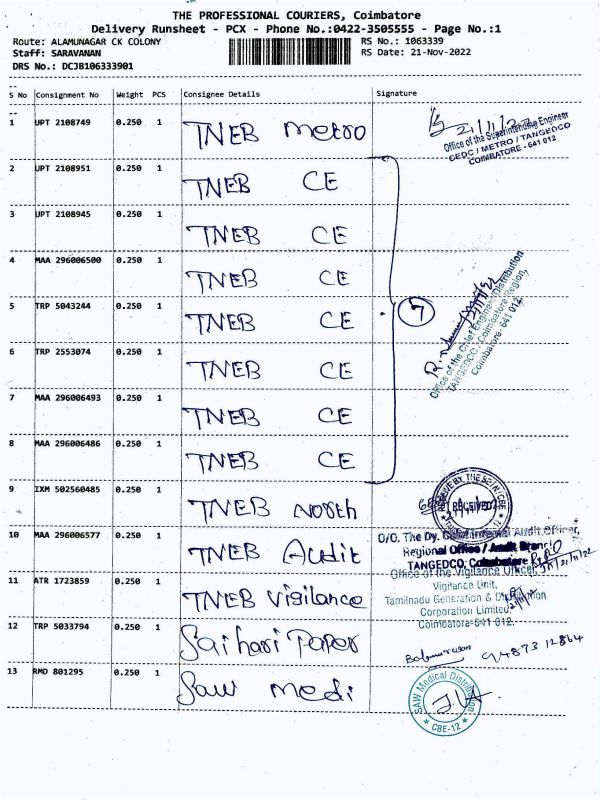 THE PROFESSIONAL COURIERS, Coimbatore
Delivery Runsheet - PCX - Phone No.:0422-3505555 - Page No.:1
Route: ALAMUNAGAR CK COLONY RS No.: 1063339
Staff: SARAVANAN RS Date: 21-Nov-2022
DRS No.: DCJB106333901
S No Consignment No Weight PCS Consignee Details Signature
1 UPT 2108749 0.250 1 TNEB Metro
21/11/22
Office of the Superintending Engineer
CEDC / METRO / TANGEDCO
COIMBATORE - 641 012
2 UPT 2108951 0.250 1 TNEB CE
3 UPT 2108945 0.250 1 TNEB CE
4 MAA 296006500 0.250 1 TNEB CE
5 TRP 5043244 0.250 1 TNEB CE
6 TRP 2553074 0.250 1 TNEB CE
7 MAA 296006493 0.250 1 TNEB CE
8 MAA 296006486 0.250 1 TNEB CE
7
Office of the Chief Engineer/Distribution
TANGEDCO / Coimbatore Region,
Coimbatore-641 012.
9 IXM 502560485 0.250 1 TNEB North
RECEIVED
10 MAA 296006577 0.250 1 TNEB Audit
O/O. The Dy. Chief Internal Audit Officer,
Regional Office / Audit Branch
TANGEDCO, Coimbatore
11 ATR 1723859 0.250 1 TNEB Vigilance
Office of the Vigilance Officer,
Vigilance Unit,
Tamilnadu Generation & Distribution
Corporation Limited
Coimbatore-641 012.
12 TRP 5033794 0.250 1 Sai hari Paper
94873 12864
13 RMD 801295 0.250 1 Saw Medi
SAW Medical Distribution
CBE-12